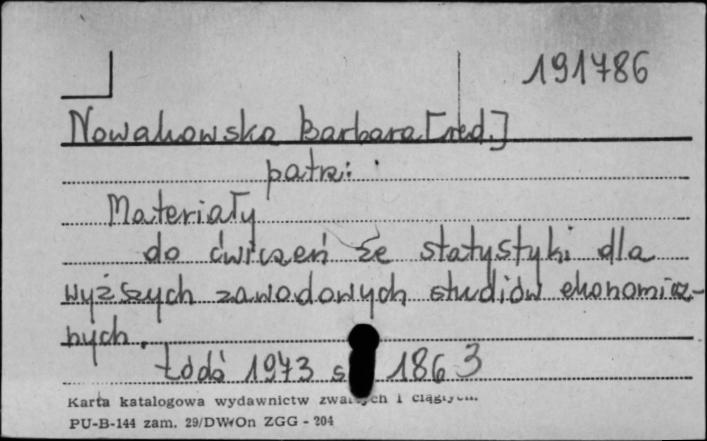 191786
Nowakowska Barbara [red.]
patrz:
Materiały
do ćwiczeń ze statystyki dla
wyższych zawodowych studiów ekonomicz-
nych.
Łódź 1973 s 186 3
Karta katalogowa wydawnictw zwartych i ciągłych
PU-B-144 zam. 29/DWOn ZGG - 204